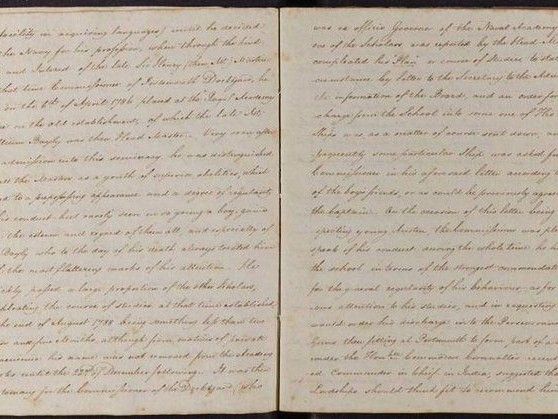 facility in acquiring languages) until he decided
the Navy for his profession, when through the kind
and Interest of the late Sir Henry (then Mr. Martin
that time Commissioner of Portsmouth Dockyard, he
on the 8th of April 1786 placed at the Royal Academy
on the old establishment, of which the late Mr.
Bayly was then Head Master. Very soon after
admission into this seminary he was distinguished
the Masters as a youth of superior abilities, which
to a prepossessing appearance and a degree of regularity
his conduct but rarely seen in so young a boy, gained
the esteem and regard of them all, and especially of
Bayly who to the day of his death always treated him
the most flattering marks of his attention. He
passed a large proportion of the other Scholars,
completing the course of studies at that time established
the end of August 1788 being something less than two
and five Months although from motives of private
his name was not removed from the Academy
until the 22nd of December following. It was then
customary for the Commissioner of the Dockyard, (who
was ex officio Governor of the Naval Academy
one of the Scholars was reported by the Head Master
completed his Plan or course of Studies to state
circumstance by letter to the Secretary to the Admiralty
the information of the Board, and an order for
charge from the School into some one of His
Ships was as a matter of course sent down,
frequently some particular Ship was asked for
Commissioner in his aforesaid letter according
of the boy's friends, or as could be previously agreed
the Captain. On the occasion of this letter being
respecting young Austen the Commissioner was pleased
speak of his conduct during the whole time he had
the school in terms of the strongest commendation
for the general regularity of his behaviour as for
attention to his studies, and in requesting
would order his discharge into the Perseverance
Guns then fitting at Portsmouth to form part of a
under the Honble. Commodore Cornwallis
Commander in Chief in India, suggested that
Lordships should think fit to recommend him